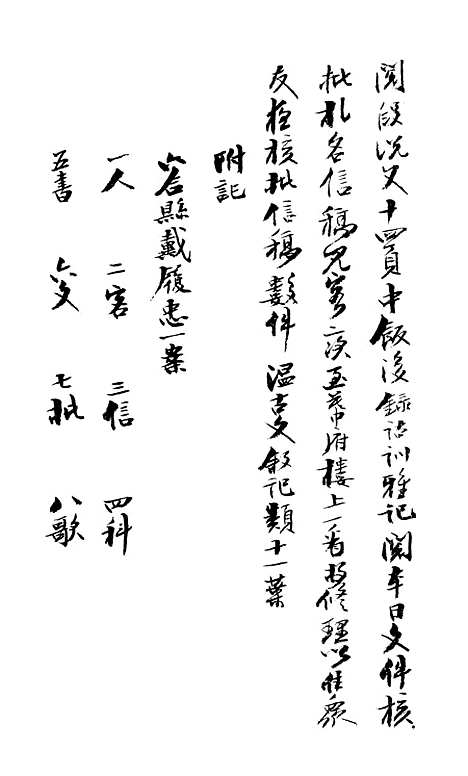 閱段說文十四頁中飯後錄詁訓雅記閱本日文件核
批札各信稿見客二次至英中府樓上一看擬修理以住眾
友極核批信稿數件溫古文敘記類十一葉
附記
六合縣戴履忠一案
一人 二客 三信 四科
五書 六文 七批 八歌